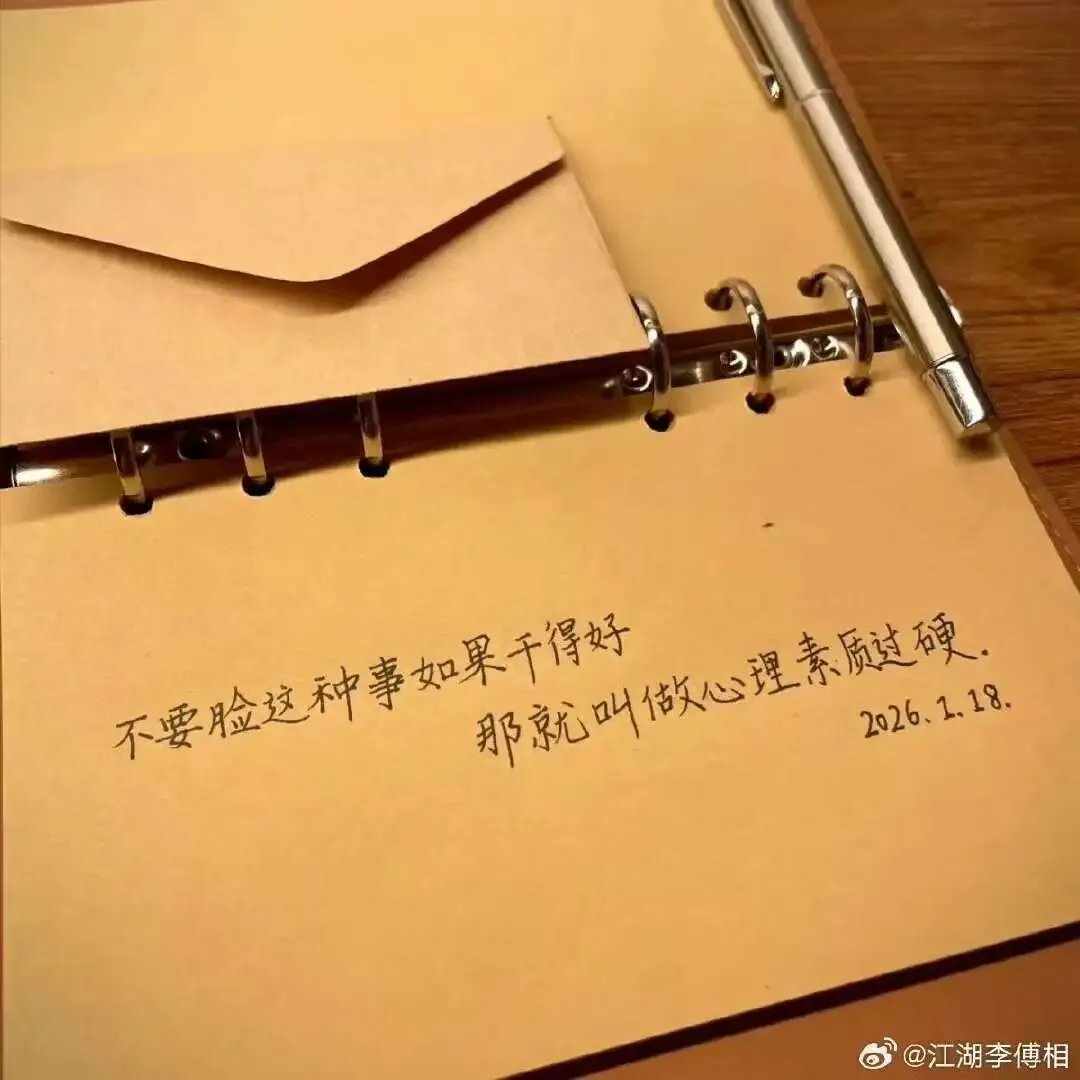 不要脸这种事如果干得好
那就叫做心理素质过硬.
2026.1.18.
@江湖李傅相